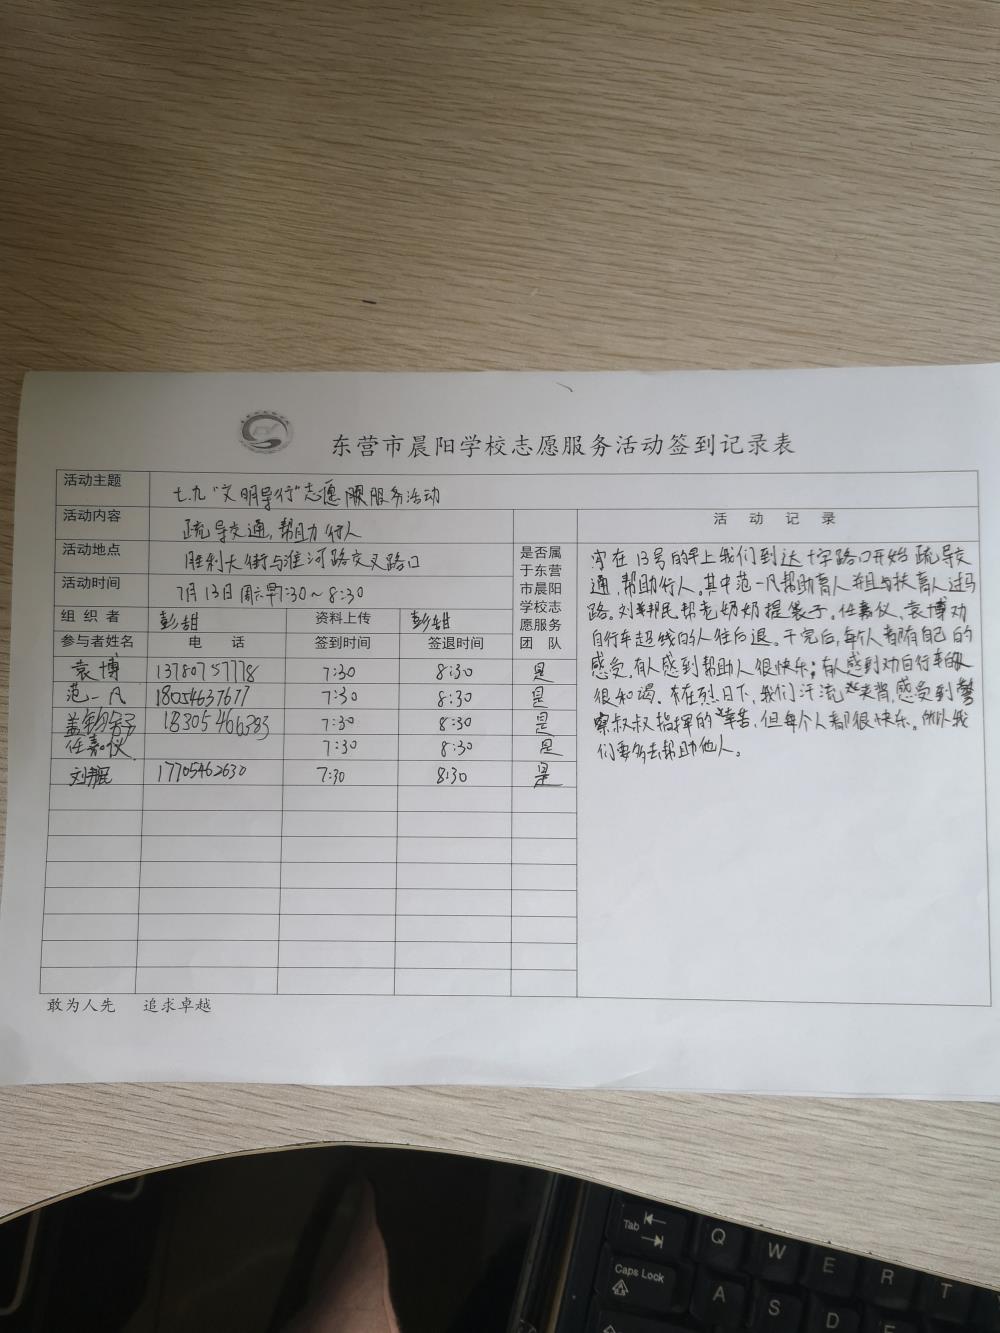 东营市晨阳学校志愿服务活动签到记录表
活动主题 七.九"文明导行"志愿服务活动
活动内容 疏导交通,帮助行人
活动地点 胜利大街与淮河路交叉路口
活动时间 7月13日周六早7:30～8:30
组织者 彭甜 资料上传 彭甜
是否属于东营市晨阳学校志愿服务团队
参与者姓名 电话 签到时间 签退时间
袁博 13780757778 7:30 8:30 是
范一凡 18054637677 7:30 8:30 是
盖 18305466383 7:30 8:30 是
任嘉仪 7:30 8:30 是
刘邦民 17705462630 7:30 8:30 是
活动记录
在13号的早上我们到达十字路口开始疏导交
通,帮助行人。其中范一凡帮助盲人并且与扶盲人过马
路。刘邦民帮老奶奶提袋子。任嘉仪、袁博劝
自行车超线的人往后退。干完后,每个人都有自己的
感受,有人感到帮助人很快乐;有人感到劝自行车
很和谒。在烈日下,我们汗流夹背,感受到警
察叔叔指挥的辛苦,但每个人都很快乐。所以我
们要多去帮助他人。
敢为人先 追求卓越
Tab
Q
W
E
R
T
Caps Lock
A
S
D
F